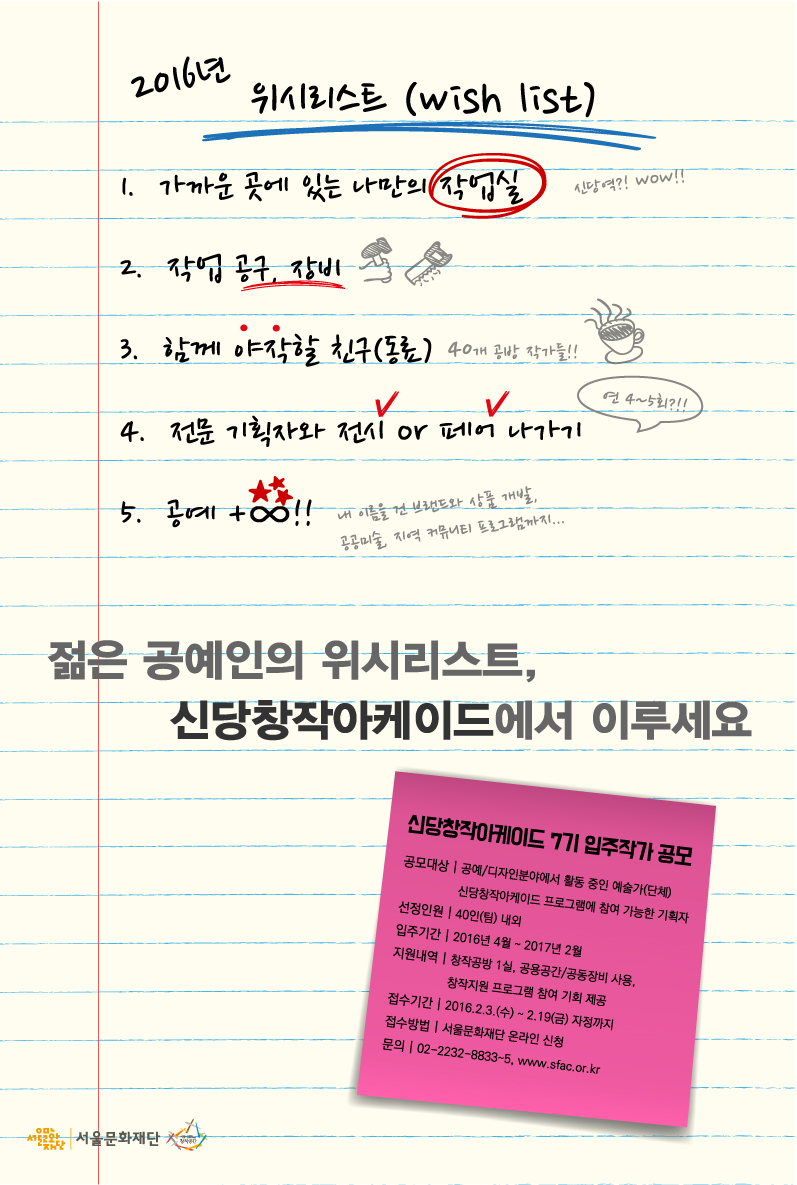 2016년
위시리스트 (wish list)
1. 가까운 곳에 있는 나만의 작업실 신당역?! WOW!!
2. 작업 공구, 장비
3. 함께 야작할 친구(동료) 40개 공방 작가들!!
연 4~5회?!!
4. 전문 기획자와 전시 or 페어 나가기
5. 공예 +∞!! 내 이름을 건 브랜드와 상품 개발,
공공미술, 지역 커뮤니티 프로그램까지...
젊은 공예인의 위시리스트,
신당창작아케이드에서 이루세요
신당창작아케이드 7기 입주작가 공모
공모대상 | 공예/디자인분야에서 활동 중인 예술가(단체)
신당창작아케이드 프로그램에 참여 가능한 기획자
선정인원 | 40인(팀) 내외
입주기간 | 2016년 4월 ~ 2017년 2월
지원내역 | 창작공방 1실, 공용공간/공동장비 사용,
창작지원 프로그램 참여 기회 제공
접수기간 | 2016.2.3.(수) ~ 2.19(금) 자정까지
접수방법 | 서울문화재단 온라인 신청
문의 | 02-2232-8833~5, www.sfac.or.kr
서울문화재단